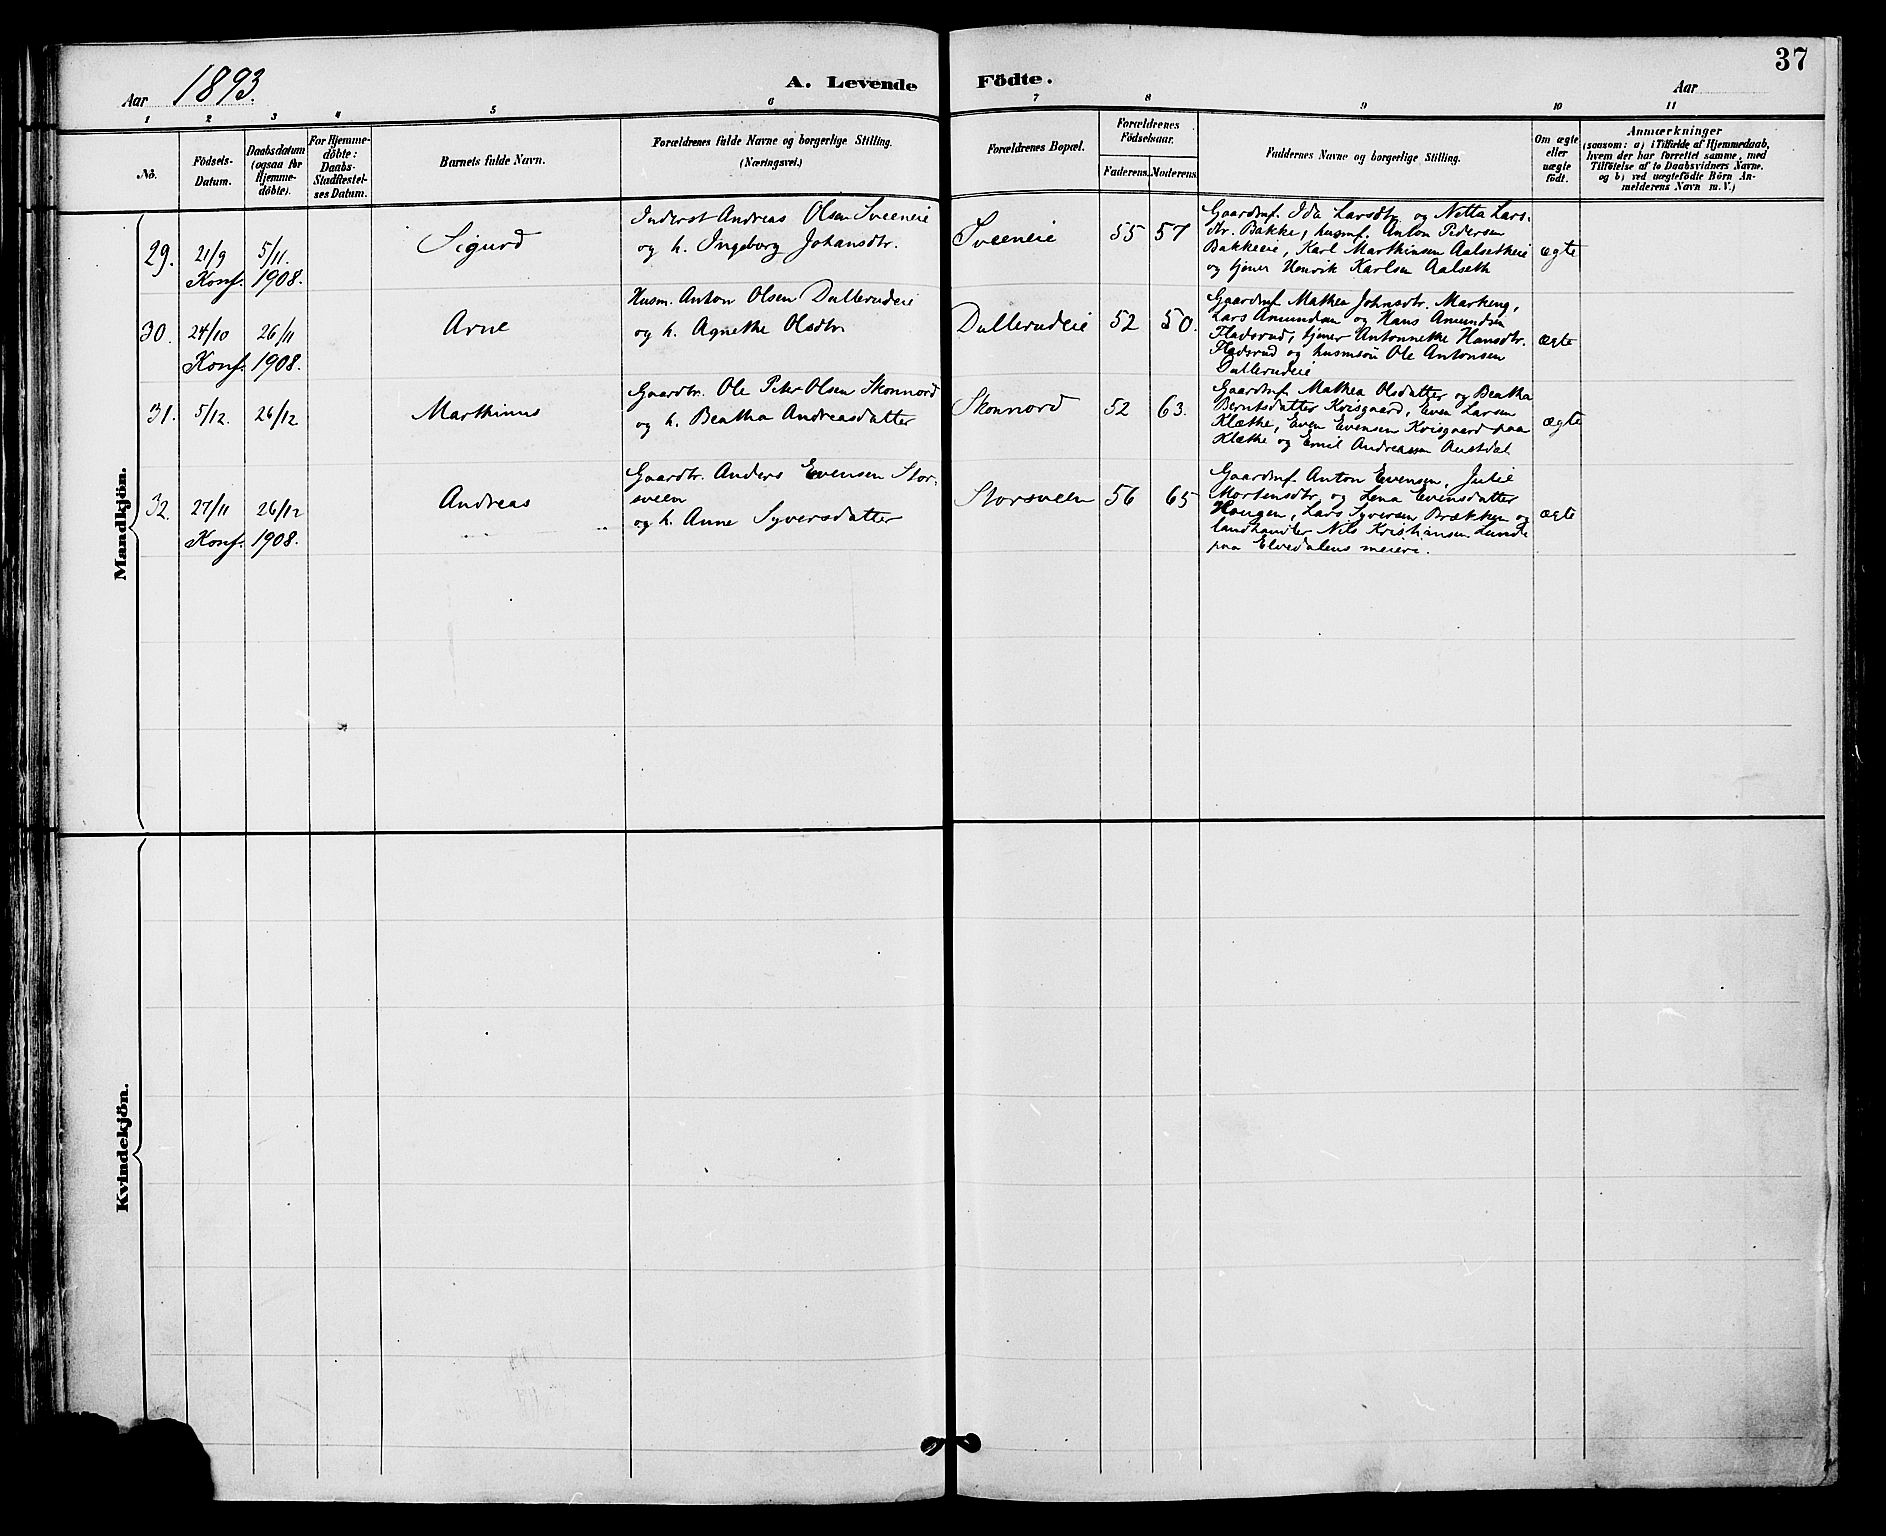 37
Aar 1893.
A. Levende Födte.
Aar
1 2 3 4 5 6 7 8 9 10 11
No.
Födsels-
Datum.
Daabsdatum
(ogsaa för
Hjemme-
döbte).
For Hjemme-
döbte:
Daabs-
Stadfæstel-
ses Datum.
Barnets fulde Navn.
Forældrenes fulde Navne og borgerlige Stilling.
(Næringsvei.)
Forældrenes Bopæl.
Forældrenes
Födselsaar.
Faderens. Moderens.
Faddernes Navne og borgerlige Stilling.
Om ægte
eller
uægte
födt.
Anmærkninger
(saasom: a) i Tilfælde af Hjemmedaab,
hvem der har forrettet samme, med
Tilföielse af to Daabsvidners Navne.
og b) ved uægtefödte Börn An-
melderens Navn m. V.)
Mandkjön.
29. 21/9 5/11.
Konf. 1908.
Sigurd
Inderst Andreas Olsen Sveeneie
og h. Ingeborg Johansdtr.
Sveeneie 55 57
Gaardmf. Ida Larsdtr. og Netta Lars-
dtr. Bakke, husmf. Anton Pedersen
Bakkeeie, Karl Marthinsen Aalsetheie
og tjener Henrik Karlsen Aalseth
ægte
30. 24/10 26/11
Konf. 1908.
Arne
Husm. Anton Olsen Dullerudeie
og h. Agnethe Olsdtr
Dullerudeie 52 50.
Gaardmf. Mathea Johnsdtr. Markeng,
Lars Amundsen og Hans Amundsen
Fladsrud, tjener Antonnette Hansdtr.
Fladsrud og husmsön Ole Antonsen
Dullerudeie
ægte
31. 5/12. 26/12
Marthinus
Gaardbr. Ole Peter Olsen Skonnord
og h. Beatha Andreasdatter
Skonnord 52 63.
Gaardmf. Mathea Olsdatter og Beatha
Berntsdatter Kvisgaard, Even Larsen
Klæthe, Even Evensen Kvisgaard paa
Klæthe og Emil Andreassen Austdal
ægte
32. 27/11 26/12
Konf. 1908.
Andreas
Gaardbr. Anders Evensen Stor-
sveen
og h. Anne Syversdatter
Storsveen 56 65
Gaardmf. Anton Evensen, Julie
Mortensdtr. og Lena Evensdatter
Haugen, Lars Syversen Brækken og
landhandler Nils Kristiansen Lunde
paa Elvedalens meieri.
ægte
Kvindekjön.